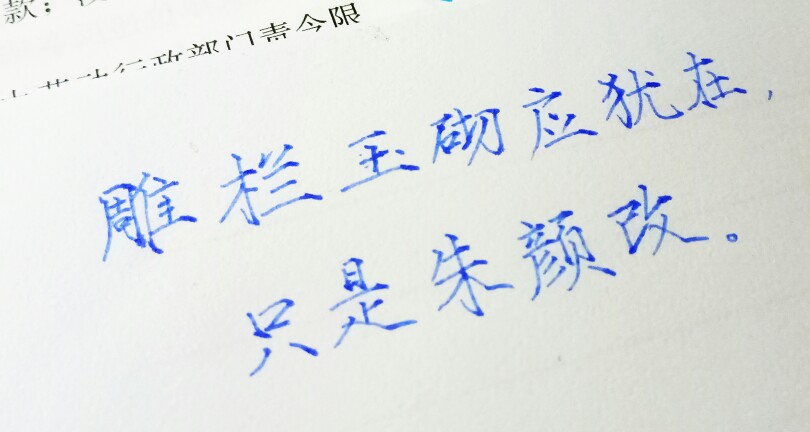 款：
行政部门责令限
雕栏玉砌应犹在，
只是朱颜改。